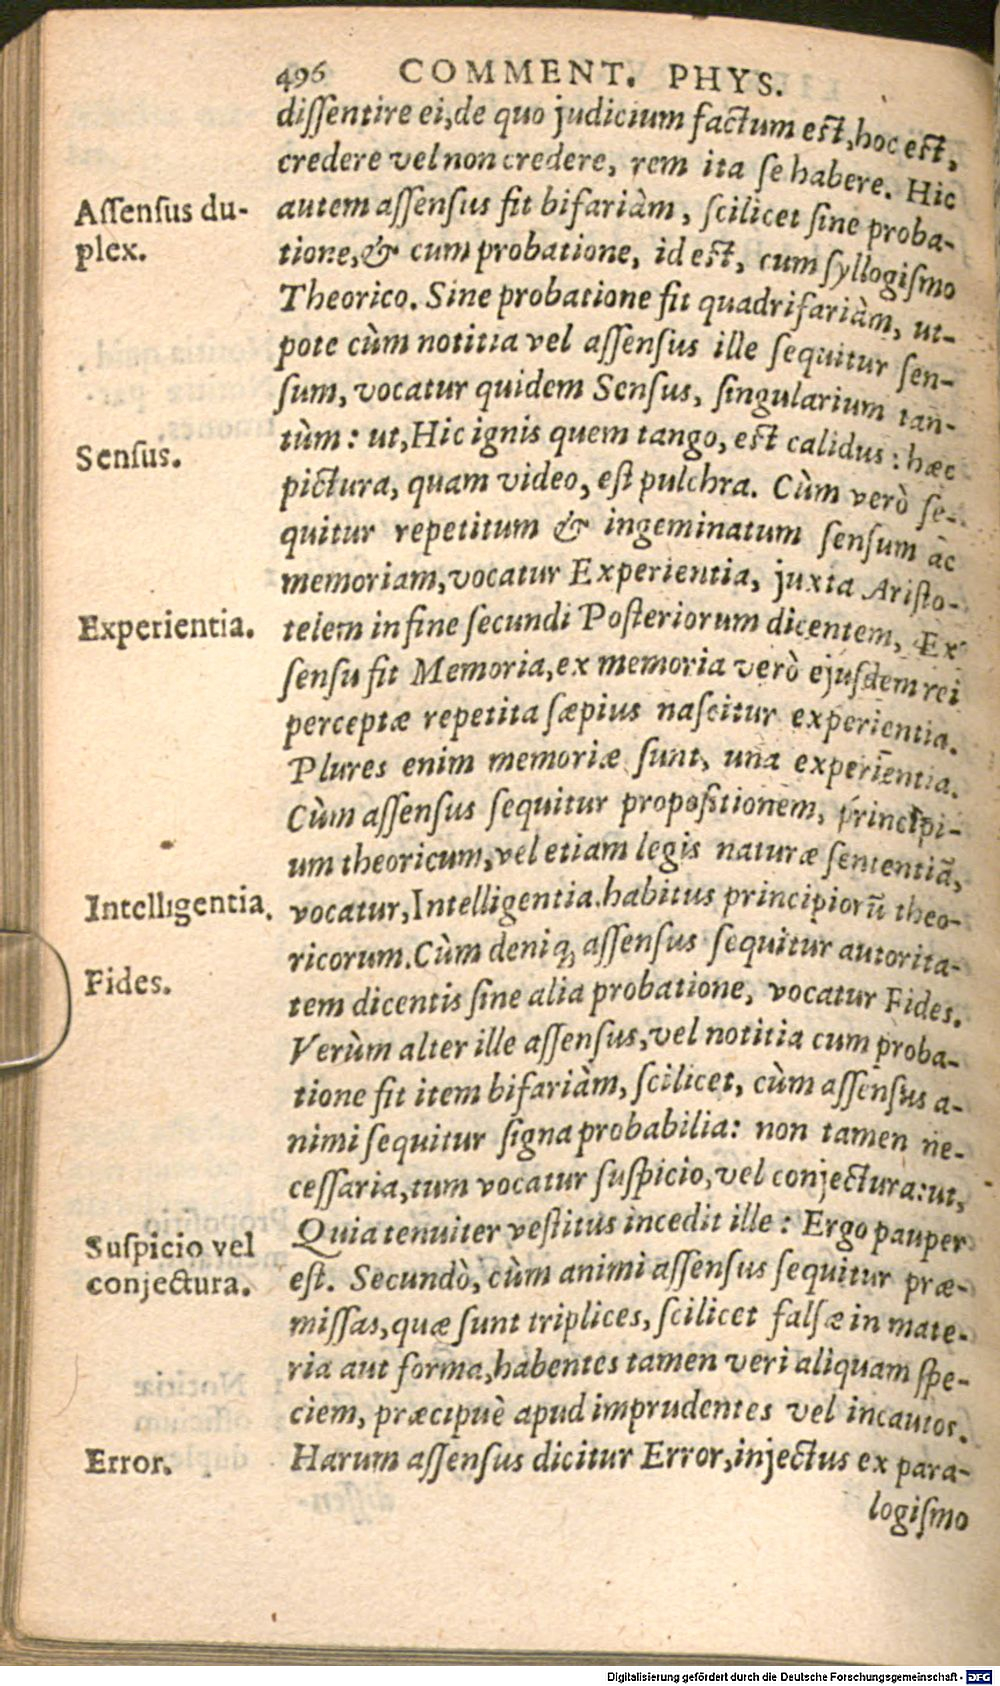 496 COMMENT. PHYS.
dissentire ei, de quo judicium factum est, hoc est,
credere vel non credere, rem ita se habere. Hic
Assensus du-
plex.
autem assensus fit bifariàm, scilicet sine proba-
tione, & cum probatione, id est, cum syllogismo
Theorico. Sine probatione fit quadrifariàm, ut-
pote cùm notitia vel assensus ille sequitur sen-
sum, vocatur quidem Sensus, singularium tan-
Sensus.
tùm: ut, Hic ignis quem tango, est calidus: hæc
pictura, quam video, est pulchra. Cùm verò se-
quitur repetitum & ingeminatum sensum ac
memoriam, vocatur Experientia, juxta Aristo-
Experientia.
telem in fine secundi Posteriorum dicentem, Ex
sensu fit Memoria, ex memoria verò ejusdem rei
perceptæ repetita sæpius nascitur experientia.
Plures enim memoriæ sunt, una experientia.
Cùm assensus sequitur propositionem, principi-
um theoricum, vel etiam legis naturæ sententiā,
Intelligentia.
vocatur, Intelligentia. habitus principiorū theo-
ricorum. Cùm deniq; assensus sequitur autorita-
Fides.
tem dicentis sine alia probatione, vocatur Fides.
Verùm alter ille assensus, vel notitia cum proba-
tione fit item bifariàm, scilicet, cùm assensus a-
nimi sequitur signa probabilia: non tamen ne-
cessaria, tum vocatur suspicio, vel conjectura: ut,
Quia tenuiter vestitus incedit ille: Ergo pauper
Suspicio vel
conjectura.
est. Secundò, cùm animi assensus sequitur præ-
missas, quæ sunt triplices, scilicet falsæ in mate-
ria aut forma, habentes tamen veri aliquam spe-
ciem, præcipuè apud imprudentes vel incautos.
Error.
Harum assensus dicitur Error, injectus ex para-
logismo
Digitalisierung gefördert durch die Deutsche Forschungsgemeinschaft - DFG